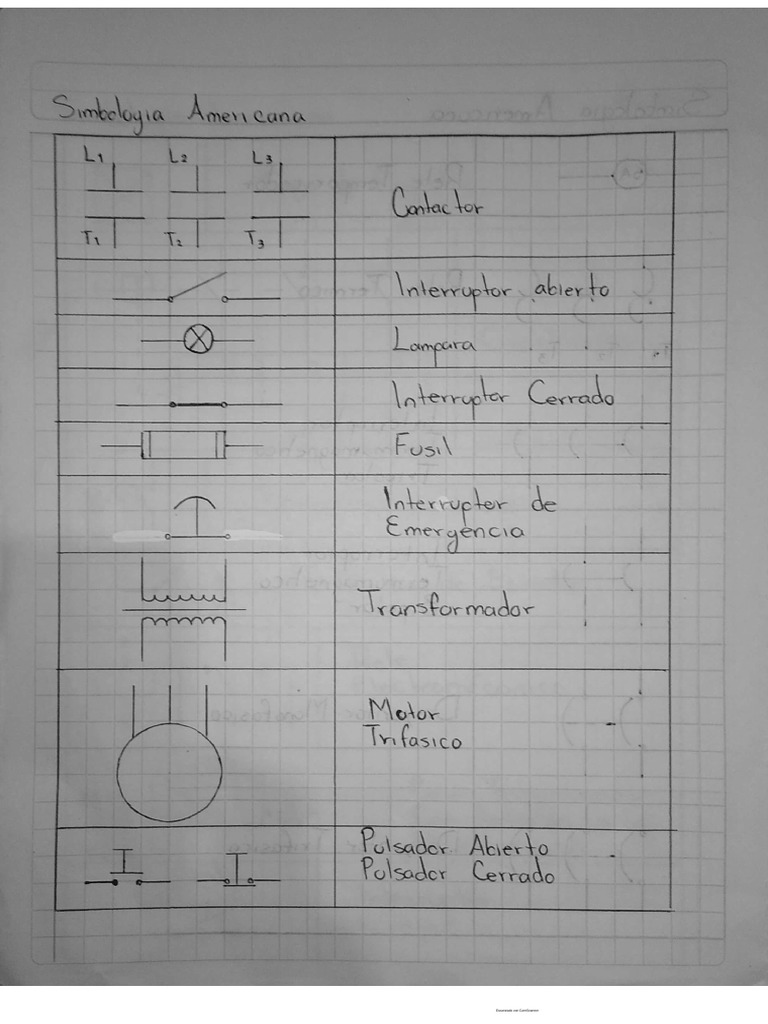 Simbologia Americana
L1 L2 L3
T1 T2 T3
Contactor
Interruptor abierto
Lampara
Interruptor Cerrado
Fusil
Interruptor de
Emergencia
Transformador
Motor
Trifasico
Pulsador Abierto
Pulsador Cerrado
Escaneado con CamScanner